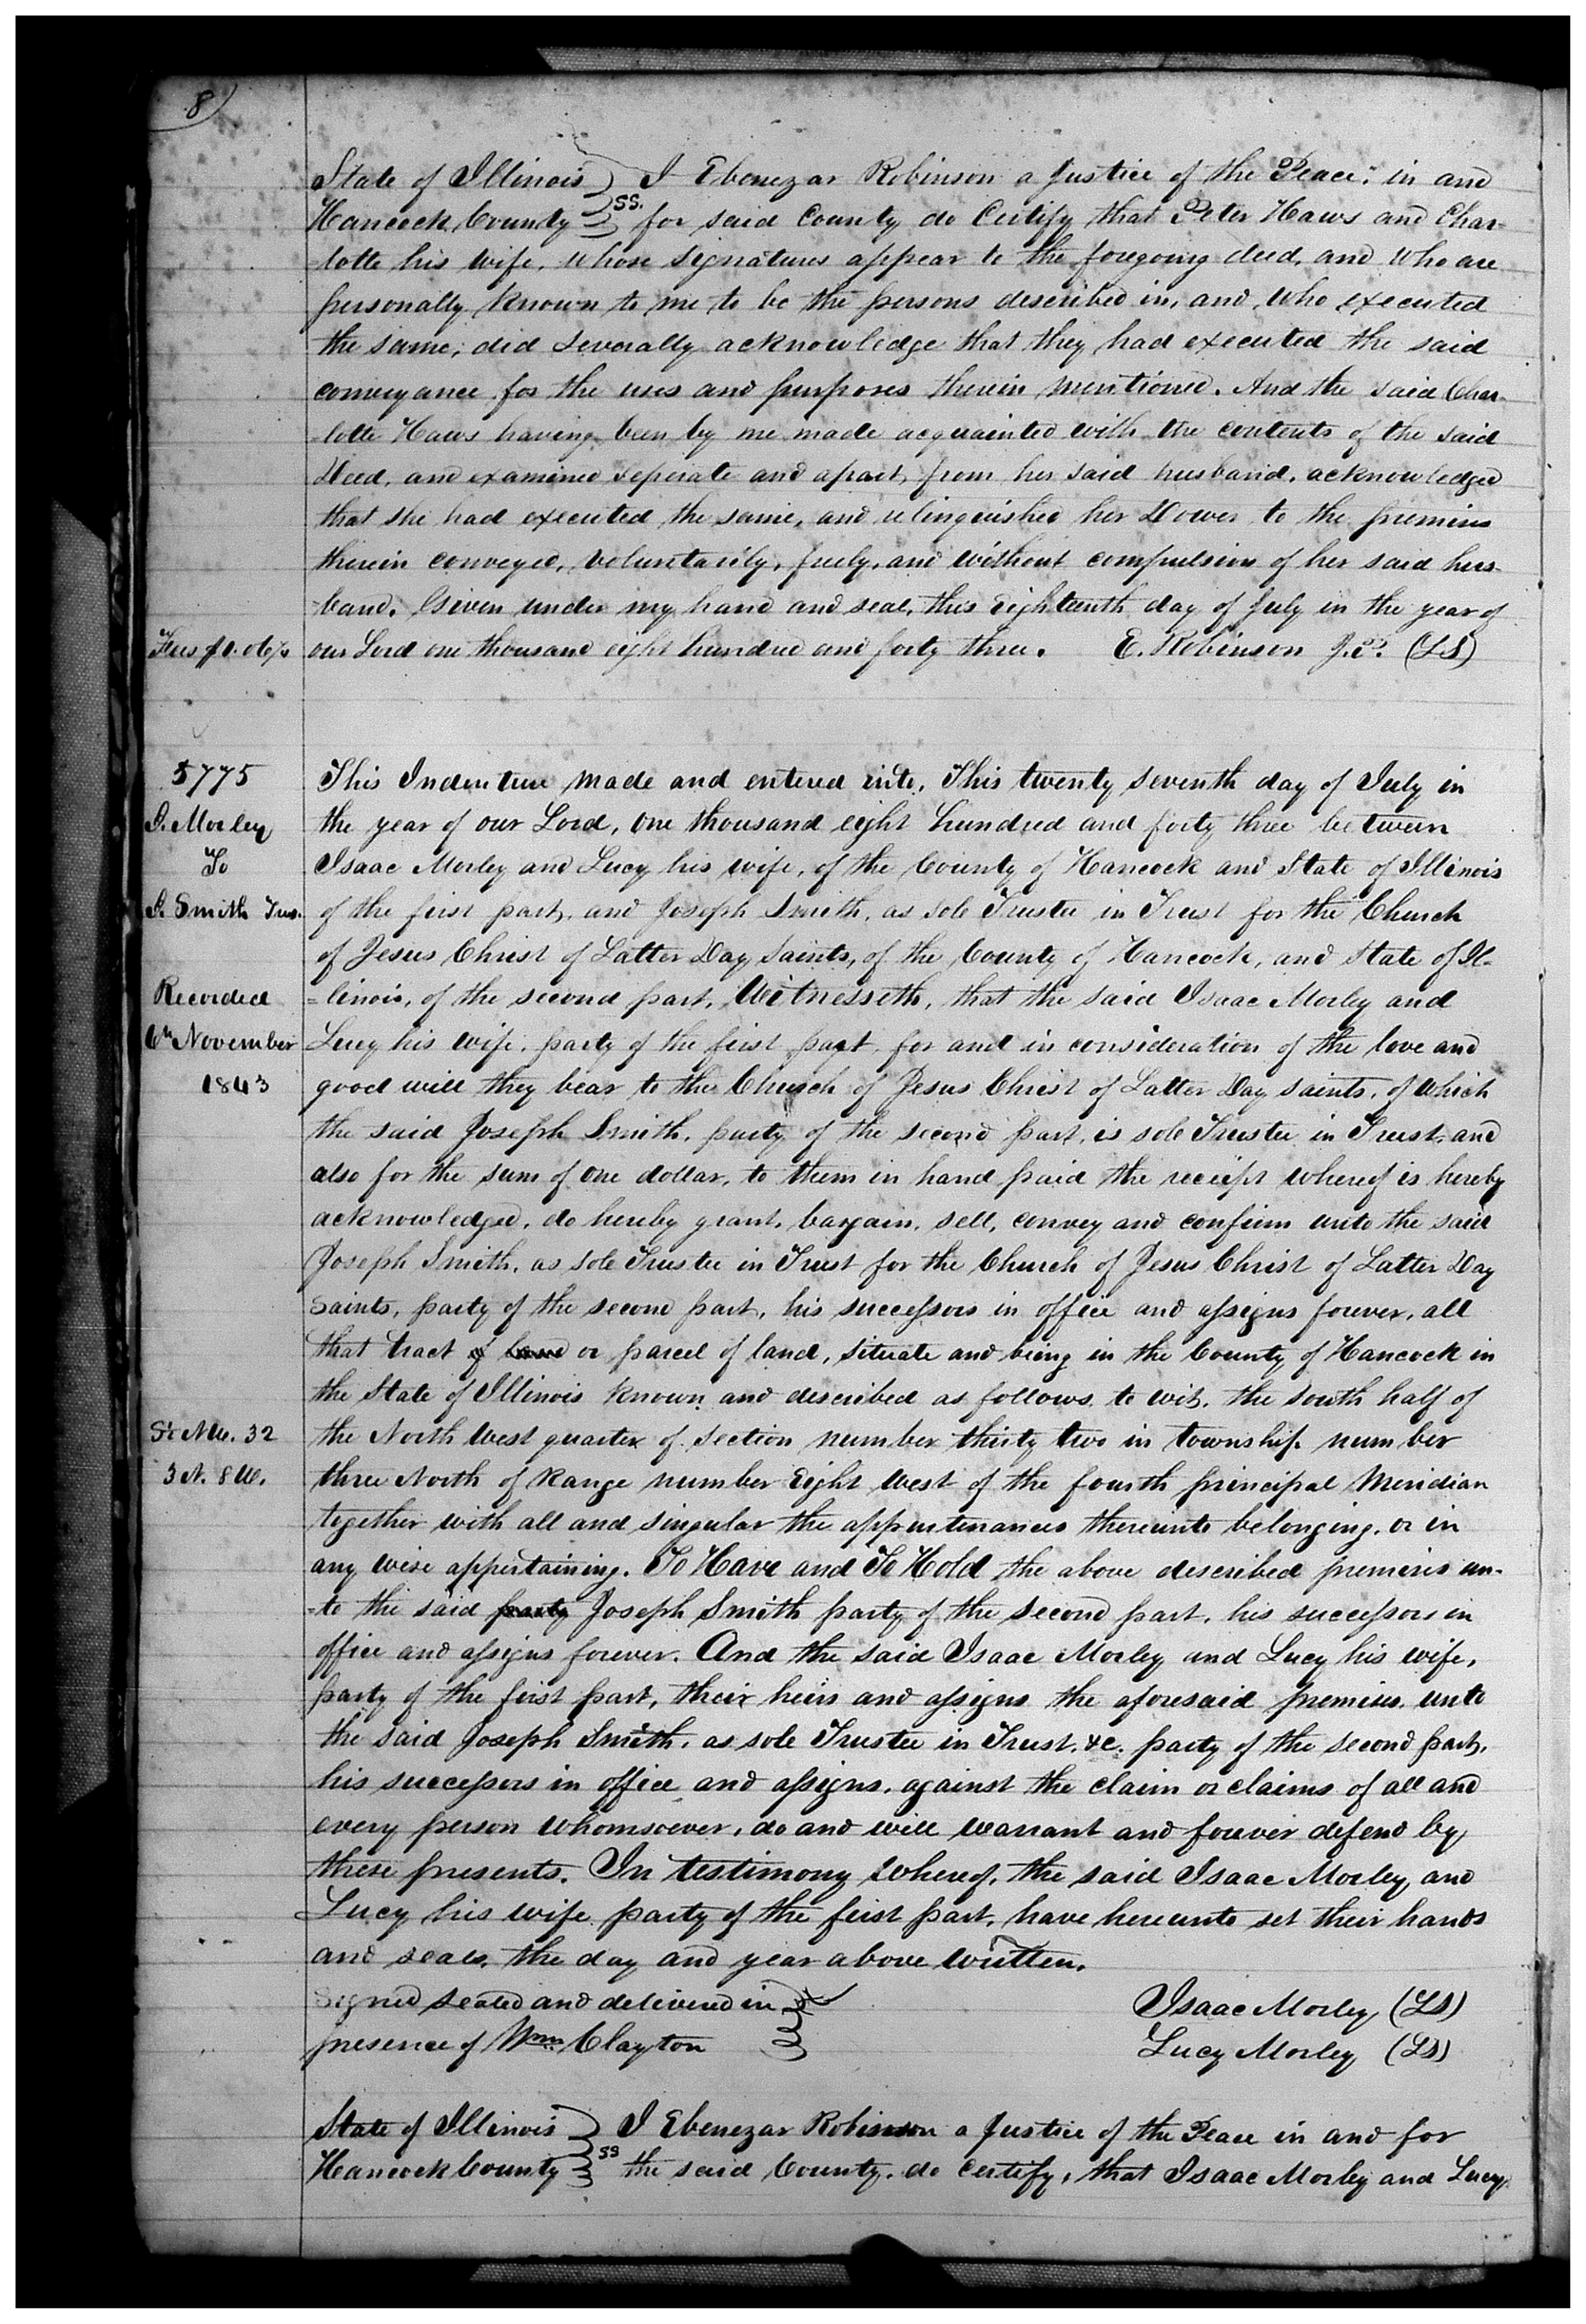 8
State of Illinois I Ebenezar Robinson a Justice of the Peace, in and
Hancock County SS. for said County do Certify that Peter Haws and Char-
-lotte his wife, whose signatures appear to the foregoing deed, and who are
personally known to me to be the persons described in, and who executed
the same, did severally acknowledge that they had executed the said
conveyance for the uses and purposes therein mentioned. And the said Char-
-lotte Haws having been by me made acquainted with the contents of the said
Deed, and examined seperate and apart, from her said husband, acknowledged
that she had executed the same, and relinquished her Dower to the premises
therein conveyed, voluntarily, freely, and without compulsion of her said hus-
-band. Given under my hand and seal, this eighteenth day of July in the year of
Fees our Lord one thousand eight hundred and forty three. E. Robinson J.P. (LS)
5775 This Indenture made and entered into, This twenty seventh day of July in
I. Morley the year of our Lord, one thousand eight hundred and forty three between
To Isaac Morley and Lucy his wife, of the County of Hancock and State of Illinois
J. Smith Trus. of the first part, and Joseph Smith, as sole Trustee in Trust for the Church
of Jesus Christ of Latter Day Saints, of the County of Hancock, and State of Il-
Recorded =linois, of the second part, Witnesseth, that the said Isaac Morley and
6th November Lucy his wife, party of the first part, for and in consideration of the love and
1843 good will they bear to the Church of Jesus Christ of Latter Day saints, of which
the said Joseph Smith, party of the second part, is sole Trustee in Trust, and
also for the sum of one dollar, to them in hand paid the receipt whereof is hereby
acknowledged, do hereby grant, bargain, sell, convey and confirm unto the said
Joseph Smith, as sole Trustee in Trust for the Church of Jesus Christ of Latter Day
Saints, party of the second part, his successors in office and assigns forever, all
that tract of land or parcel of land, situate and being in the County of Hancock in
the State of Illinois known and described as follows to wit, the south half of
S½ NW. 32 the North West quarter of section number thirty two in township number
3 N. 8 W. three North of Range number Eight West of the fourth principal Meridian
together with all and singular the appurtenances thereunto belonging, or in
any wise appertaining. To Have and To Hold the above described premises un-
-to the said party Joseph Smith party of the second part, his successors in
office and assigns forever. And the said Isaac Morley and Lucy his wife,
party of the first part, their heirs and assigns the aforesaid premises unto
the said Joseph Smith, as sole Trustee in Trust, &c. party of the second part,
his successors in office and assigns, against the claim or claims of all and
every person whomsoever, do and will warrant and forever defend by
these presents. In testimony whereof, the said Isaac Morley, and
Lucy his wife party of the first part, have hereunto set their hands
and seals, the day and year above written.
Signed sealed and delivered in Isaac Morley (LS)
presence of Wm Clayton Lucy Morley (LS)
State of Illinois I Ebenezar Robinson a Justice of the Peace in and for
Hancock County SS the said County, do certify, that Isaac Morley and Lucy